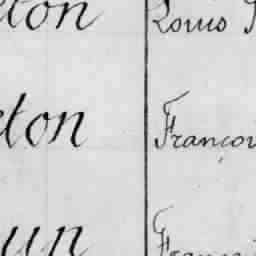 eton Louis
eton Françoi
un Franç